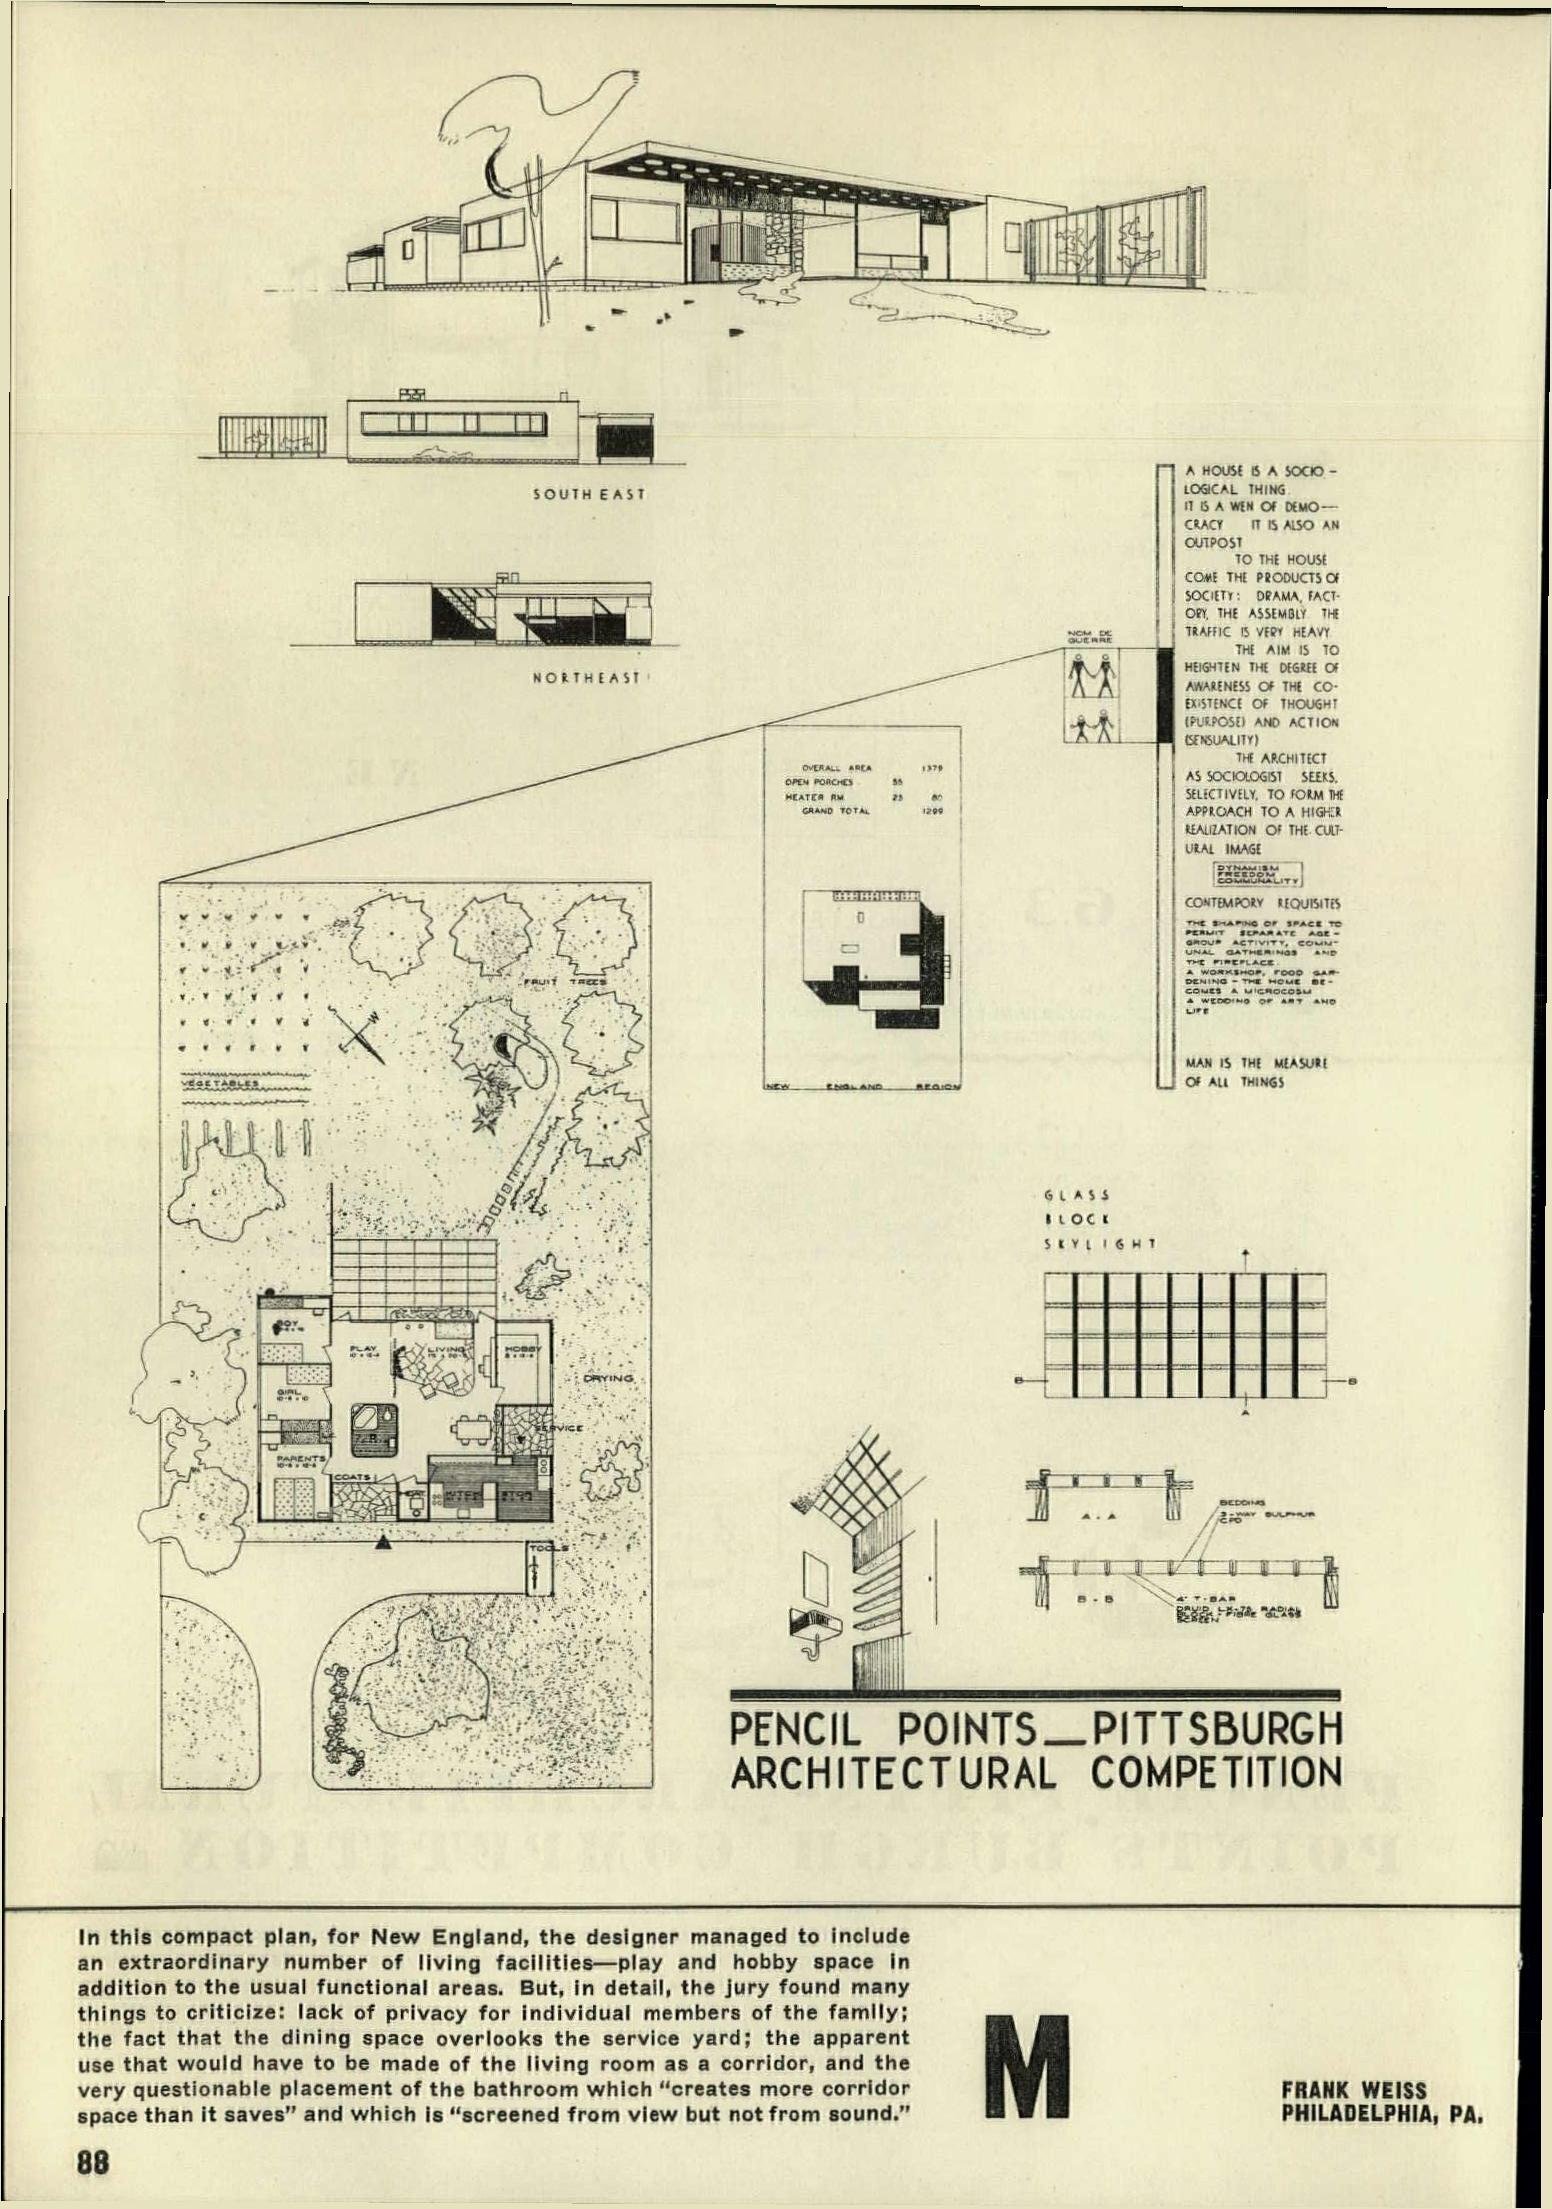 SOUTH EAST
NORTHEAST
A HOUSE IS A SOCIO-
LOGICAL THING.
IT IS A WEN OF DEMO—
CRACY IT IS ALSO AN
OUTPOST
TO THE HOUSE
COME THE PRODUCTS OF
SOCIETY: DRAMA, FACT-
ORY, THE ASSEMBLY. THE
TRAFFIC IS VERY HEAVY
THE AIM IS TO
HEIGHTEN THE DEGREE OF
AWARENESS OF THE CO-
EXISTENCE OF THOUGHT
(PURPOSE) AND ACTION
(SENSUALITY)
THE ARCHITECT
AS SOCIOLOGIST SEEKS,
SELECTIVELY, TO FORM THE
APPROACH TO A HIGHER
REALIZATION OF THE CULT-
URAL IMAGE
DYNAMISM
FREEDOM
COMMUNALITY
CONTEMPORY REQUISITES
THE SHAPING OF SPACE TO
PERMIT SEPARATE AGE-
GROUP ACTIVITY, COMM-
UNAL GATHERINGS AND
THE FIREPLACE
A WORKSHOP, FOOD GAR-
DENING - THE HOME BE-
COMES A MICROCOSM
A WEDDING OF ART AND
LIFE
MAN IS THE MEASURE
OF ALL THINGS
NOM DE
GUERRE
OVERALL AREA 1379
OPEN PORCHES 55
HEATER RM 25 80
GRAND TOTAL 1299
NEW ENGLAND REGION
FRUIT TREES
N
VEGETABLES
BOY
PLAY
LIVING
HOBBY
DRYING
GIRL
SERVICE
PARENTS
COATS
TOOLS
GLASS
BLOCK
SKYLIGHT
B B
A
A - A
BEDDING
2-WAY SULPHUR
CPD
B - B
4" T-BAR
DRUID LX-75 RADIAL
BLOCK - FIBRE GLASS
SCREEN
PENCIL POINTS_PITTSBURGH
ARCHITECTURAL COMPETITION
In this compact plan, for New England, the designer managed to include
an extraordinary number of living facilities—play and hobby space in
addition to the usual functional areas. But, in detail, the jury found many
things to criticize: lack of privacy for individual members of the family;
the fact that the dining space overlooks the service yard; the apparent
use that would have to be made of the living room as a corridor, and the
very questionable placement of the bathroom which “creates more corridor
space than it saves” and which is “screened from view but not from sound.”
M
FRANK WEISS
PHILADELPHIA, PA.
88